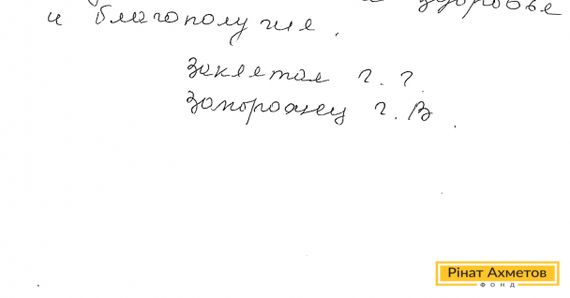 здоровье
и благополучия.
Заклетая Г. Г.
Запорожец Г. В.
Рінат Ахметов
ФОНД